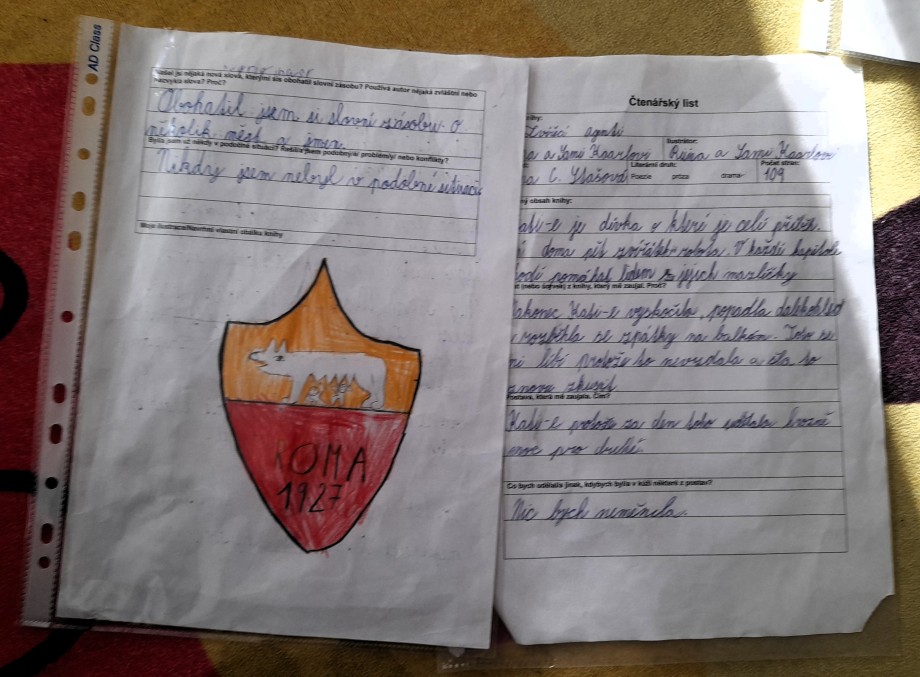 AD Class
Našel jsi nějaká nová slova, kterými sis obohatil slovní zásobu? Používá autor nějaká zvláštní nebo
nezvyklá slova? Proč?
Obohatil jsem si slovní zásobu o
několik měst a jmen.
Byl/a jsem už někdy v podobné situaci? Řešil/a jsem podobný/é problém/y/ nebo konflikty?
Nikdy jsem nebyl v podobné situaci
Moje ilustrace/Navrhni vlastní obálku knihy
ROMA
1927
Čtenářský list
Zvířecí agenti
Ilustrátor:
a a Sami Kaarlovi Riina a Sami Kaarlovi
Literární druh: Počet stran:
a C. Stašová Poezie próza drama 109
ý obsah knihy:
je dívka v které je celí příběh.
doma pět zvířátek
V každí kapitole
pomáhat lidem s jejich mazlíčky
(nebo úryvek) z knihy, který mě zaujal. Proč?
Nakonec Kati-e vyskočila, popadla dalekohled
rozběhla se zpátky na balkón. Toto se
mi líbí protože to nevzdala a šla to
znovu zkusit.
Postava, která mě zaujala. Čím?
Kati-e protože za den toho udělala hrozně
moc pro druhé.
Co bych udělal/a jinak, kdybych byl/a v kůži některé z postav?
Nic bych neměnila.